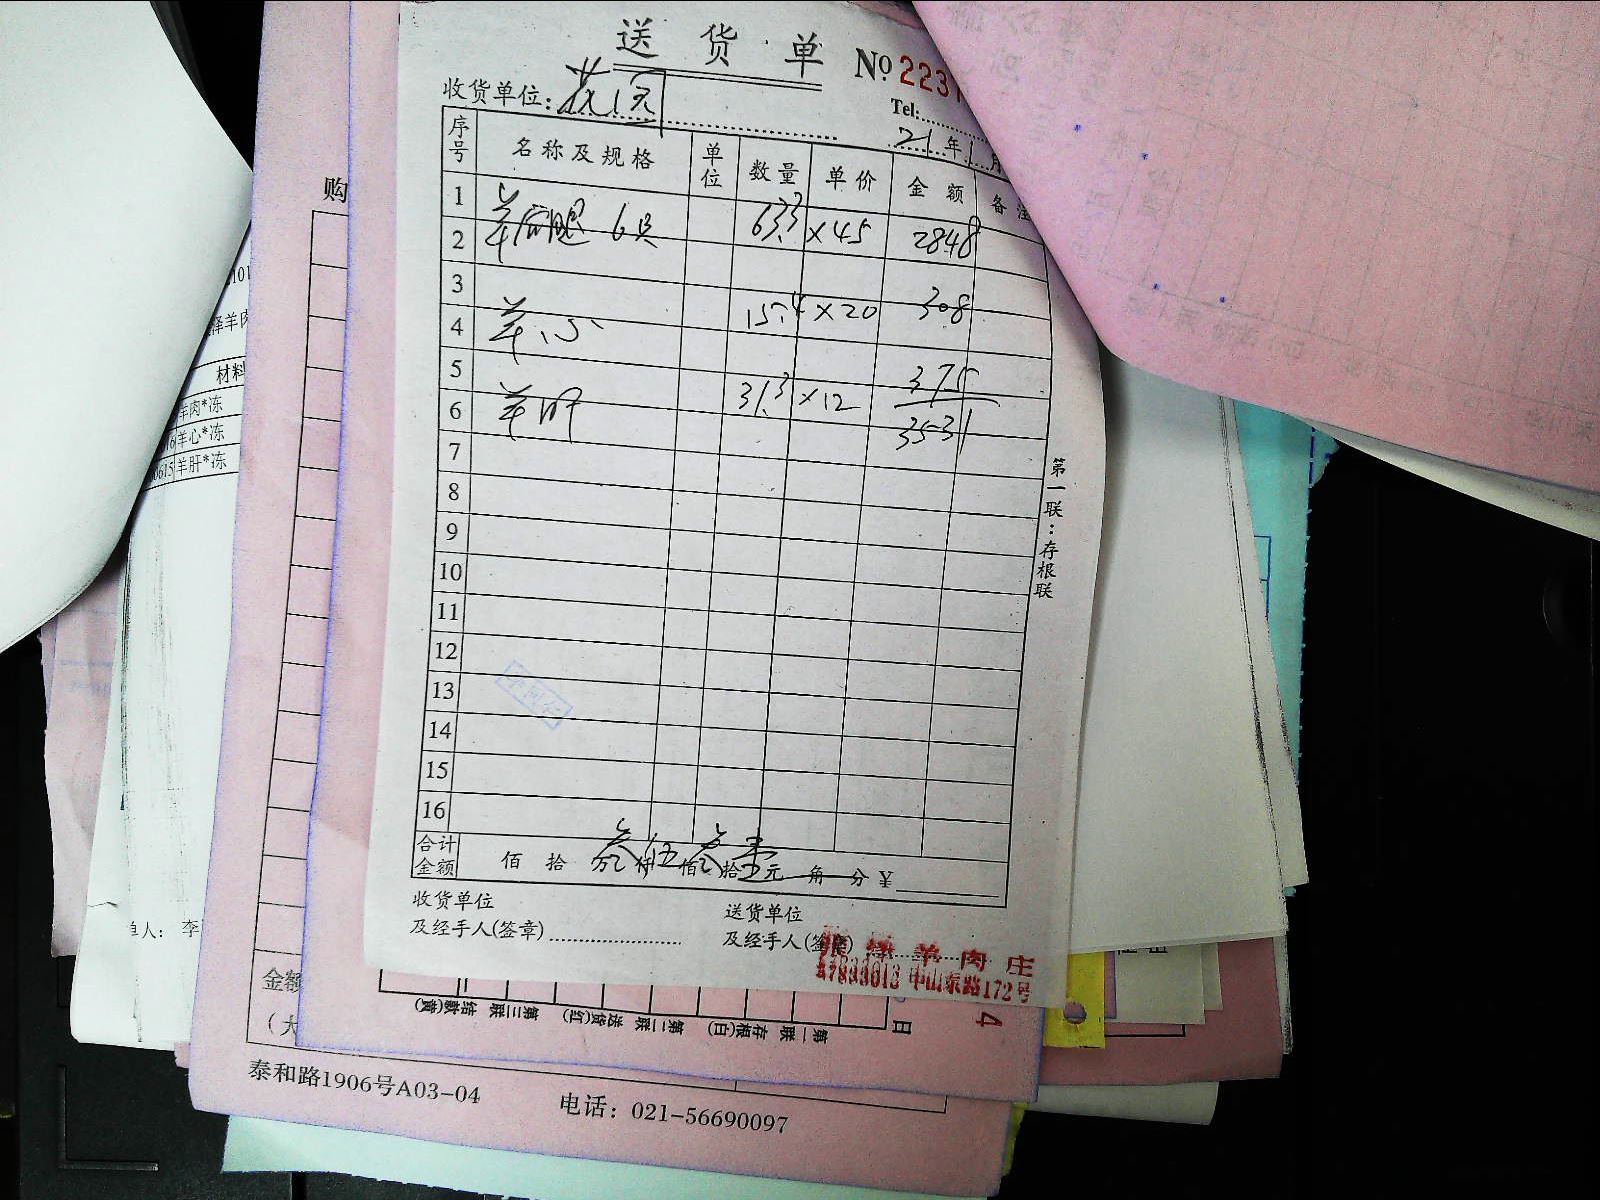 送 货 单 № 2231
收货单位:
Tel:
21 年 1 月
序号 名称及规格 单位 数量 单价 金额 备注
1 羊后腿 6只 63.3 ×45 2848
2
3
4 羊心 15.4 ×20 308
5
6 羊肝 31.3 ×12 375
3531
7
8
9
10
11
12
13
14
15
16
合计金额 佰 拾 叁仟伍佰叁拾壹元 角 分 ¥
收货单位
及经手人(签章)
送货单位
及经手人(签章)
羊肉庄
中山东路172号
第一联:存根联
购
材料
羊肉*冻
羊心*冻
羊肝*冻
单人: 李
金额
(大
第一联 存根(白) 第二联 送货(红) 第三联 结款(黄)
日
泰和路1906号A03-04 电话: 021-56690097